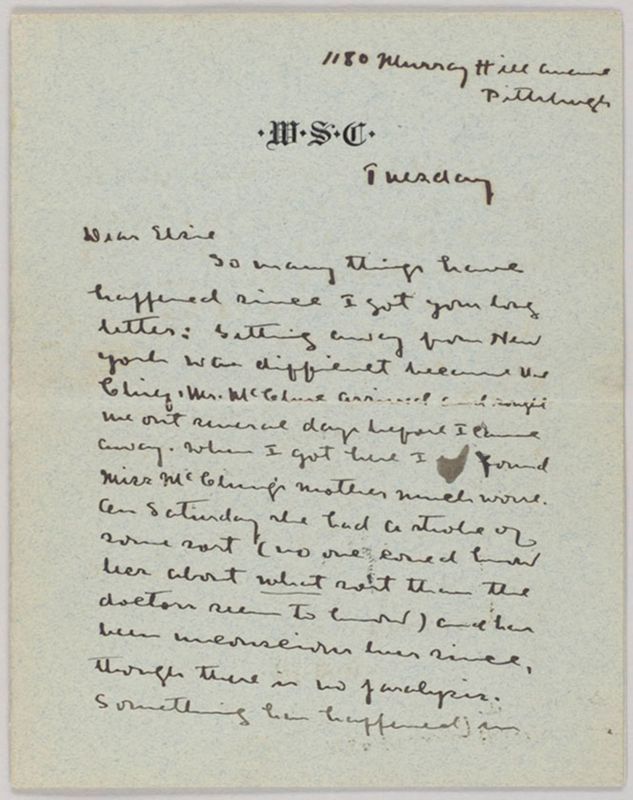 1180 Murray Hill Avenue
Pittsburgh
·W·S·C·
Tuesday
Dear Elsie
So many things have
happened since I got your long
letter: Getting away from New
York was difficult because the
Chief, Mr. McClure arrived and sought
me out several days before I came
away. When I got here I found
Miss McClung's mother much worse.
On Saturday she had a stroke of
some sort (no one could know
less about what sort than the
doctors seem to know) and has
been unconscious ever since,
though there is no paralysis.
Something has happened in